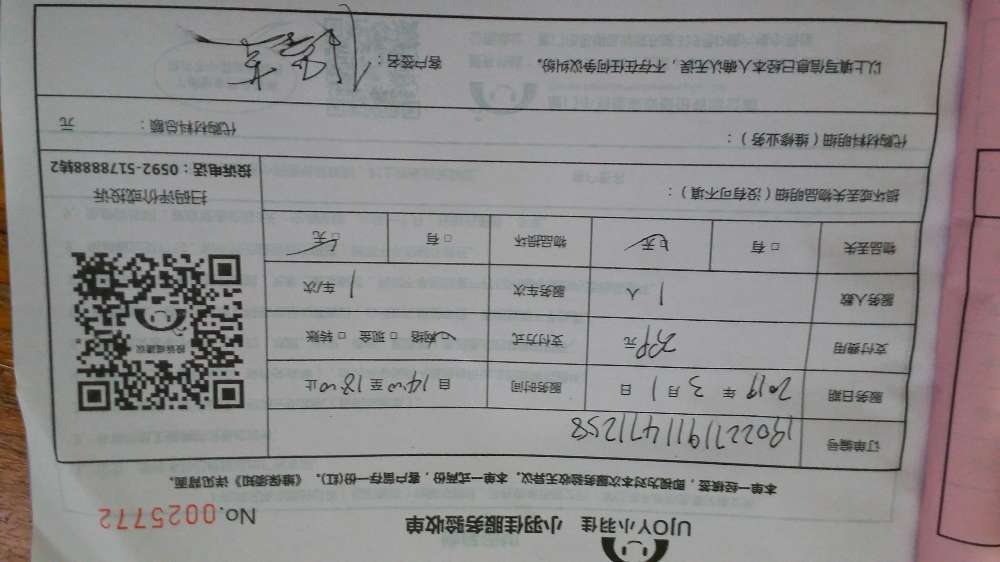 UJOY小羽佳 小羽佳服务验收单 No.0025772
本单一经核签，即视为对本次服务验收无异议。本单一式两份，客户留存一份(红)。《维保须知》详见背面。
订单编号 19022719114471258
服务日期 2019 年 3 月 1 日 服务时间 自 14:00 至 18:00 止
支付费用 元 支付方式 网络 □ 现金 □ 转账
服务人数 1 人 服务车次 1 车/次
物品丢失 □ 有 □ 无 物品损坏 □ 有 □ 无
投诉或建议
损坏或丢失物品明细（没有可不填）：
扫码评价或投诉
投诉电话：0592-5178888转2
代购材料明细（维修业务）： 代购材料总额： 元
以上填写信息已经本人确认无误，不存在任何争议纠纷。 客户签名：